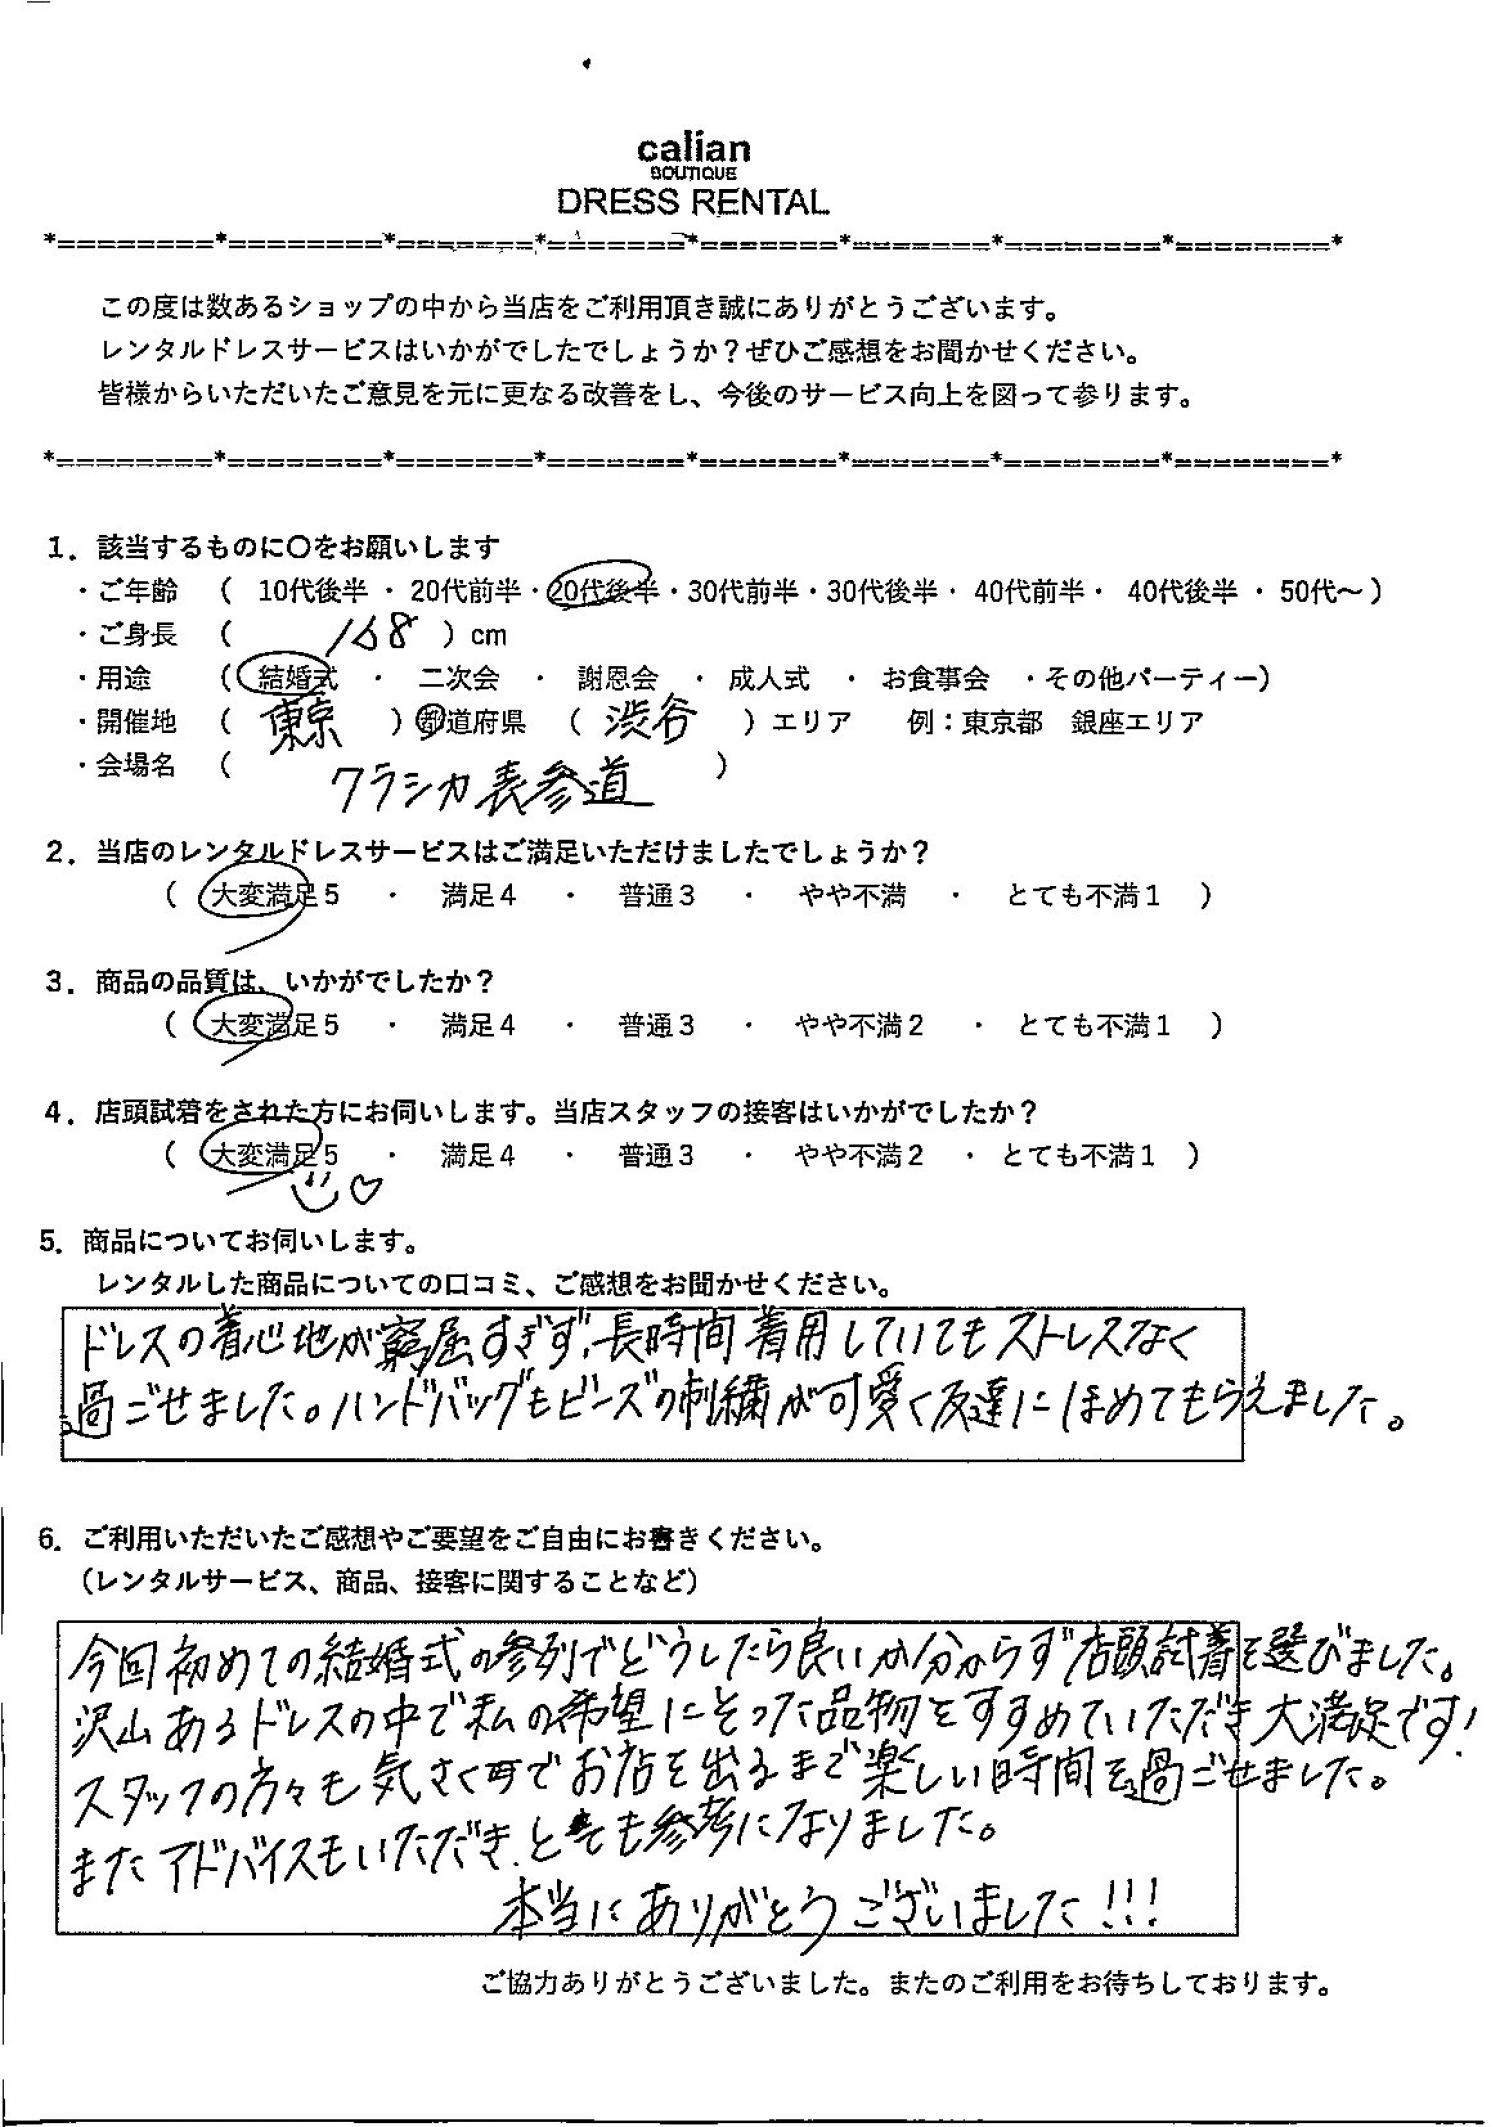 calian
BOUTIQUE
DRESS RENTAL
*========*========*=======*=======*=======*=======*========*========*
この度は数あるショップの中から当店をご利用頂き誠にありがとうございます。
レンタルドレスサービスはいかがでしたでしょうか？ぜひご感想をお聞かせください。
皆様からいただいたご意見を元に更なる改善をし、今後のサービス向上を図って参ります。
*========*========*=======*=======*=======*=======*========*========*
1．該当するものに〇をお願いします
・ご年齢 （ 10代後半 ・ 20代前半・20代後半・30代前半・30代後半・ 40代前半・ 40代後半 ・ 50代～）
・ご身長 （ 168 ）cm
・用途 （ 結婚式 ・ 二次会 ・ 謝恩会 ・ 成人式 ・ お食事会 ・その他パーティー）
・開催地 （ 東京 ）都道府県 （ 渋谷 ）エリア 例：東京都 銀座エリア
・会場名 （ クラシカ表参道 ）
2．当店のレンタルドレスサービスはご満足いただけましたでしょうか？
（ 大変満足5 ・ 満足4 ・ 普通3 ・ やや不満 ・ とても不満1 ）
3．商品の品質は、いかがでしたか？
（ 大変満足5 ・ 満足4 ・ 普通3 ・ やや不満2 ・ とても不満1 ）
4．店頭試着をされた方にお伺いします。当店スタッフの接客はいかがでしたか？
（ 大変満足5 ・ 満足4 ・ 普通3 ・ やや不満2 ・ とても不満1 ）
5．商品についてお伺いします。
レンタルした商品についての口コミ、ご感想をお聞かせください。
ドレスの着心地が窮屈すぎず、長時間着用していてもストレスなく
過ごせました。ハンドバッグもビーズの刺繍が可愛く友達にほめてもらえました。
6．ご利用いただいたご感想やご要望をご自由にお書きください。
（レンタルサービス、商品、接客に関することなど）
今回初めての結婚式の参列でどうしたら良いか分からず店頭試着を選びました。
沢山あるドレスの中で私の希望にそった品物をすすめていただき大満足です！
スタッフの方々も気さくでお店を出るまで楽しい時間を過ごせました。
またアドバイスもいただき、とても参考になりました。
本当にありがとうございました!!!
ご協力ありがとうございました。またのご利用をお待ちしております。